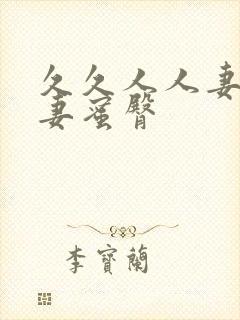 久久人人妻
妻蜜臀
李寶蘭